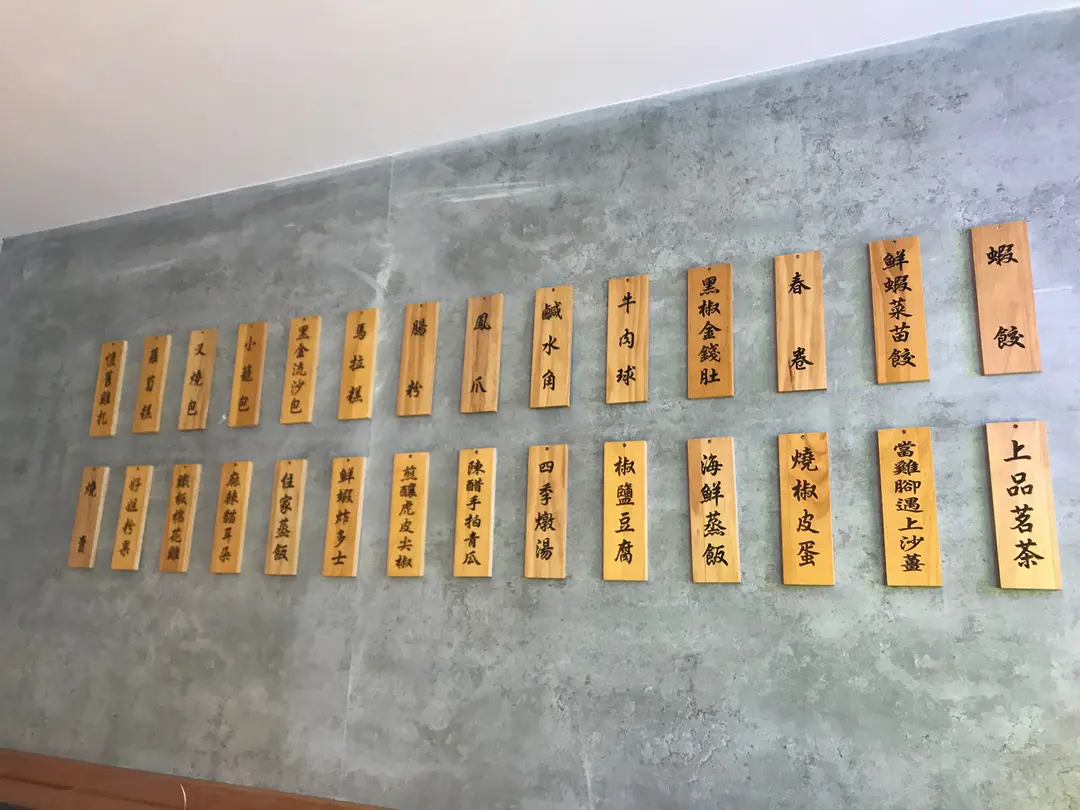 蝦餃
鮮蝦菜苗餃
春卷
黑椒金錢肚
牛肉球
鹹水角
鳳爪
腸粉
馬拉糕
黑金流沙包
小籠包
叉燒包
蘿蔔糕
懷舊雞扎
上品茗茶
當雞腳遇上沙薑
燒椒皮蛋
海鮮蒸飯
椒鹽豆腐
四季燉湯
陳醋手拍青瓜
煎釀虎皮尖椒
鮮蝦炸多士
佳家蒸飯
麻辣貓耳朵
鐵板棉花雞
好姐粉果
燒賣